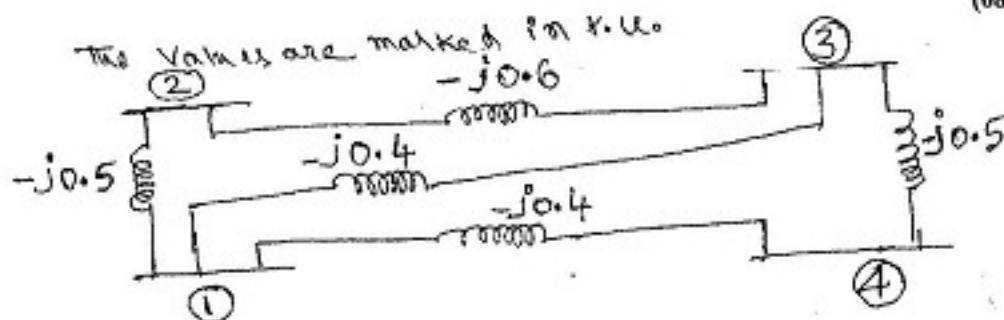 The values are marked in p.u.
②
③
-j0.6
-j0.5
-j0.4
-j0.5
-j0.4
①
④